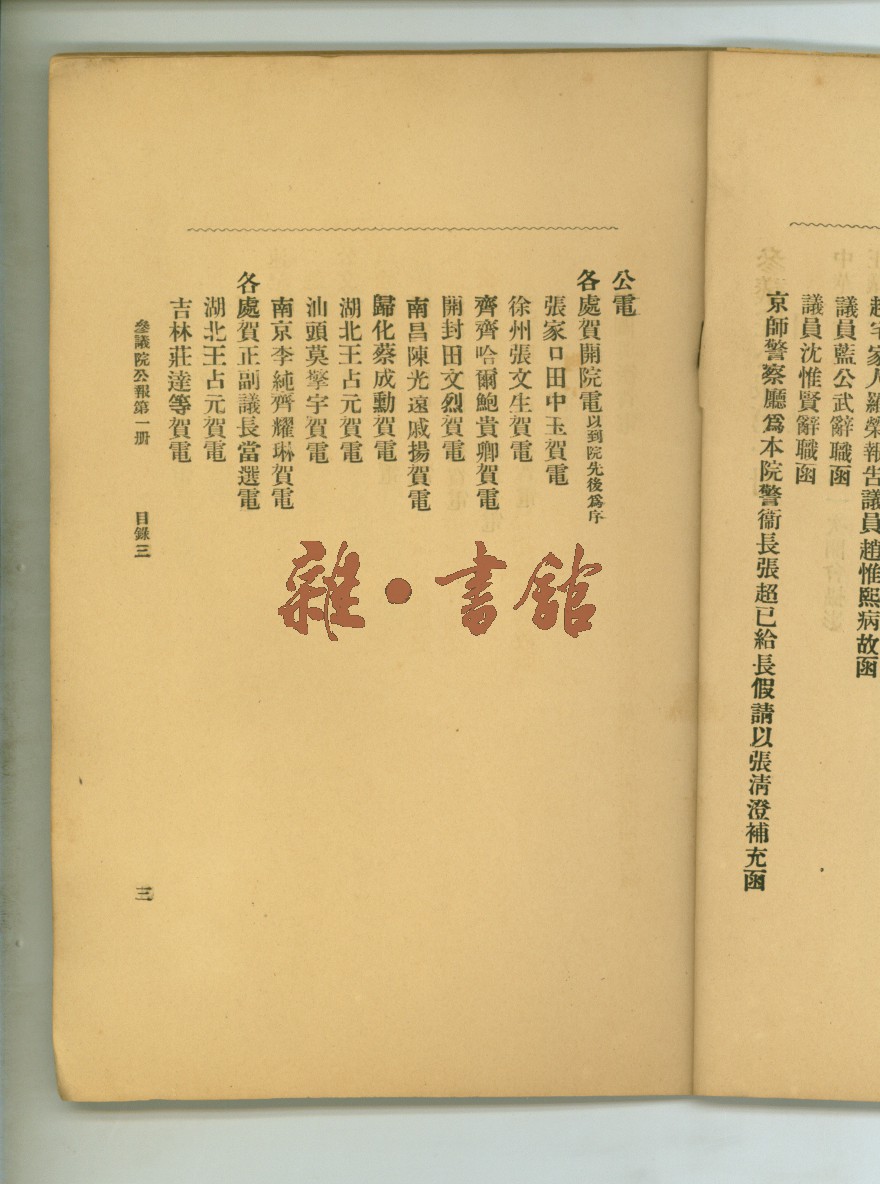 趙宅家人羅榮報吿議員趙惟熙病故函
議員藍公武辭職函
議員沈惟賢辭職函
京師警察廳爲本院警衞長張超已給長假請以張淸澄補充函
公電
各處賀開院電以到院先後爲序
張家口田中玉賀電
徐州張文生賀電
齊齊哈爾鮑貴卿賀電
開封田文烈賀電
南昌陳光遠戚揚賀電
歸化蔡成勳賀電
湖北王占元賀電
汕頭莫擎宇賀電
南京李純齊耀琳賀電
各處賀正副議長當選電
湖北王占元賀電
吉林莊達等賀電
參議院公報第一册 目錄三 三
雜•書館